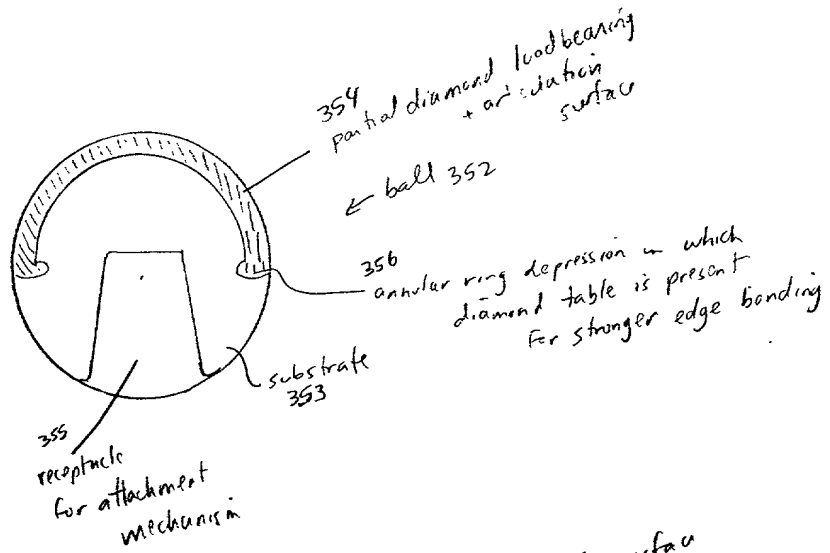 354
partial diamond loadbearing
+ articulation
surface
← ball 352
356
annular ring depression in which
diamond table is present
For stronger edge bonding
substrate
353
355
receptacle
for attachment
mechanism